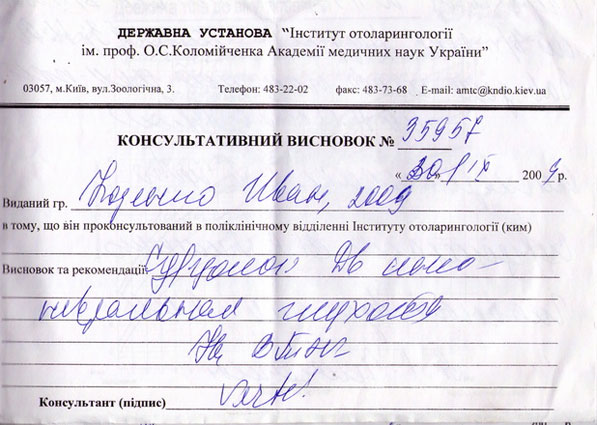 ДЕРЖАВНА УСТАНОВА “Інститут отоларингології
ім. проф. О.С.Коломійченка Академії медичних наук України”
03057, м.Київ, вул.Зоологічна, 3. Телефон: 483-22-02 факс: 483-73-68 E-mail: amtc@kndio.kiev.ua
КОНСУЛЬТАТИВНИЙ ВИСНОВОК № 35957
« 30 » IX 2009 р.
Виданий гр. Иван, 2009
в тому, що він проконсультований в поліклінічному відділенні Інституту отоларингології (ким)
Висновок та рекомендації: Сурдолог Дв сенсо-
невральная глухота
Консультант (підпис)